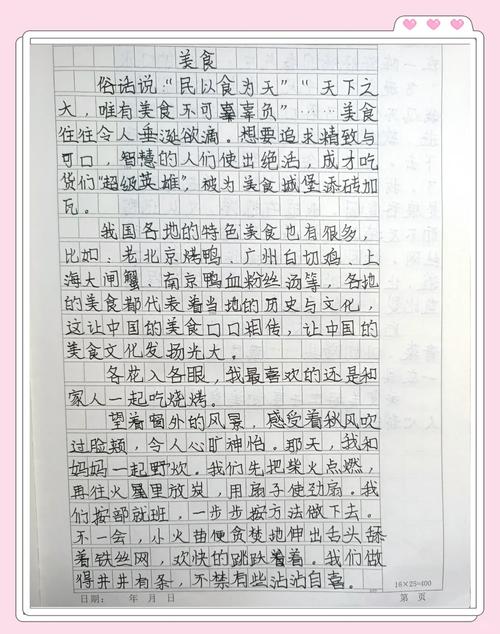 美食
俗话说“民以食为天”“天下之
大，唯有美食不可辜辜负”……美食
往往令人垂涎欲滴。想要追求精致与
可口，智慧的人们使出绝活，成才吃
货们“超级英雄”，被为美食城堡添砖加
瓦。
我国各地的特色美食也有很多，
比如、老北京烤鸭、广州白切鸡，上
海大闸蟹、南京鸭血粉丝汤等，各地
的美食都代表着当地的历史与文化，
这让中国的美食口口相传，让中国的
美食文化发扬光大。
各花入各眼，我最喜欢的还是和
家人一起吃烧烤。
望着窗外的风景，感受着秋风吹
过脸颊，令人心旷神怡。那天，我和
妈妈一起野炊。我们先把柴火点燃，
再往火里放炭，用扇子使劲扇。我
们按部就班，一步步按方法做下去。
不一会，小火苗便贪婪地伸出舌头舔
着铁丝网，欢快的跳跃着着。我们做
得井井有条，不禁有些沾沾自喜。
16×25=400
日期： 年 月 日 第 页